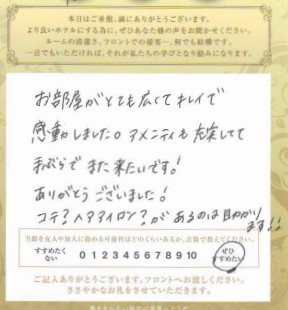 本日はご来館、誠にありがとうございます。
より良いホテルにする為に、ぜひあなた様の声をお聞かせください。
ルームの清潔さ、フロントでの接客…、何でも結構です。
一言でもいただければ、それが私たちの学びとなり励みになります。
お部屋がとても広くてキレイで
感動しました。アメニティも充実してて
手ぶらでまた来たいです!
ありがとうございました!
コテ?ヘアアイロン?があるのは助かります!!
当館を友人や知人に勧める可能性はどのくらいあるか、点数で教えてください。
すすめたくない 0 1 2 3 4 5 6 7 8 9 10 ぜひすすめたい
ご記入ありがとうございます。フロントへお渡しください。
ささやかなお礼をさせていただきます。